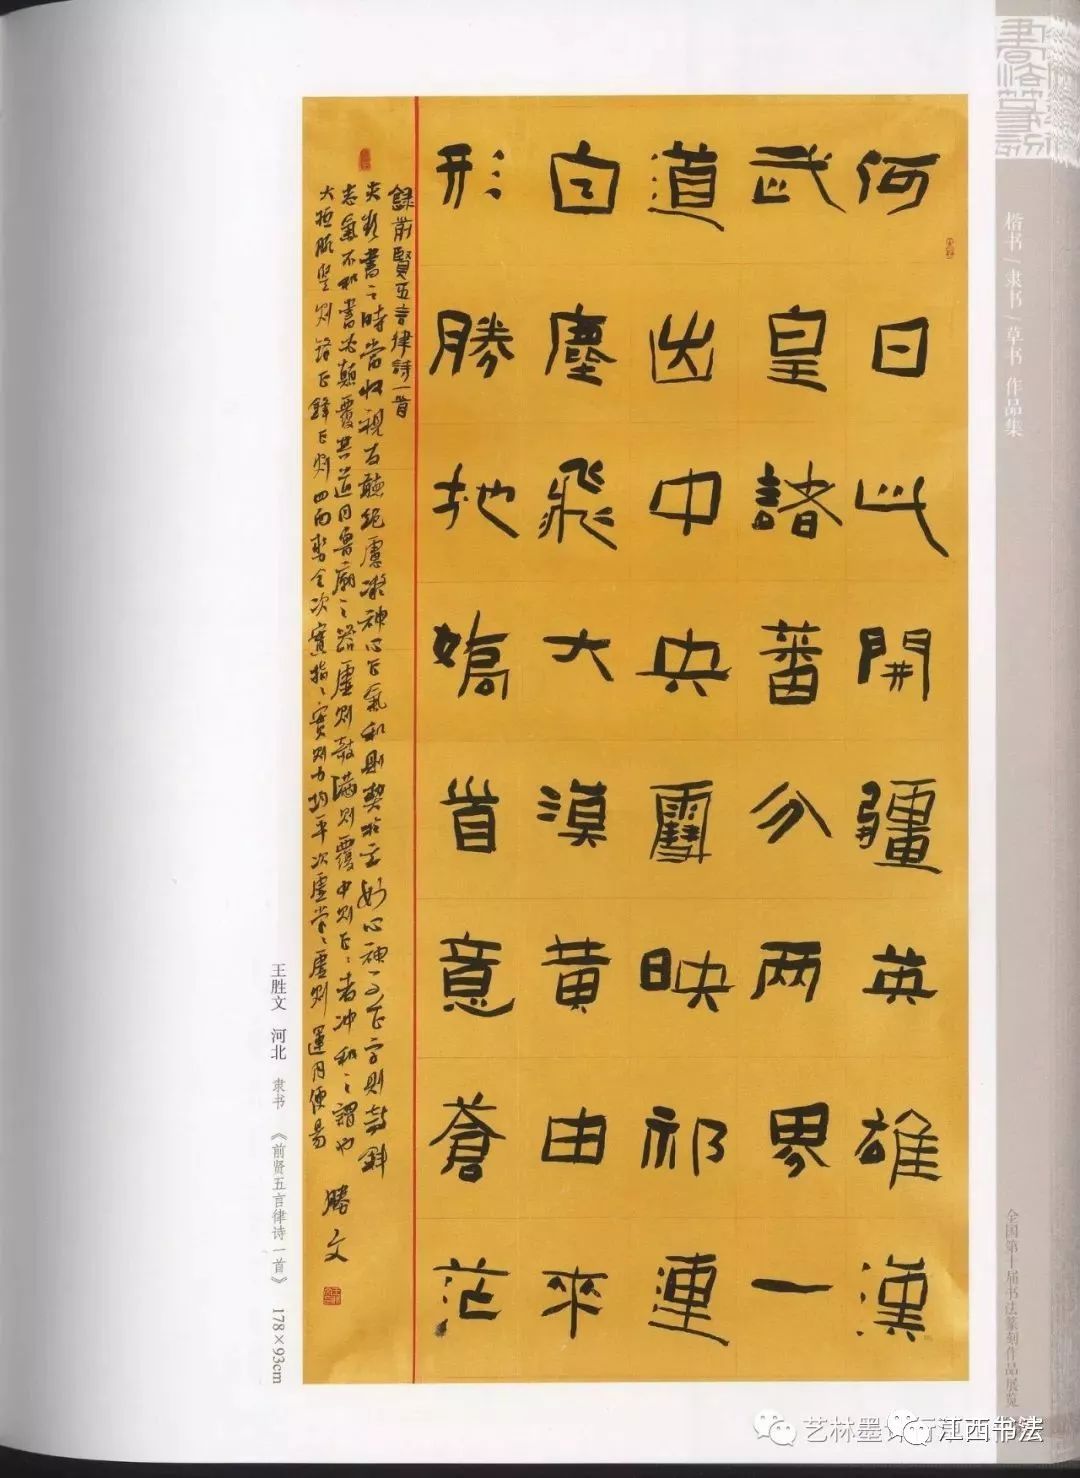 何日此開疆英雄漢
武皇諸蕃分兩界一
道出中央雪映祁連
白塵飛大漠黃由來
形勝地嬌首意蒼茫
錄前賢五言律詩一首
夫欲書之時當收視反聽絕慮凝神心正氣和則契於玄妙心神不正字則敧斜
志氣不和書必顛覆其道同魯廟之器虛則敧滿則覆中則正正者沖和之謂也
大抵腕豎則鋒正鋒正則四面勢全次實指指實則力均平次虛掌掌虛則運用便易
勝文
王胜文 河北 隶书 《前贤五言律诗一首》 178×93cm
楷书/隶书/草书 作品集
全国第十届书法篆刻作品展览
江西书法